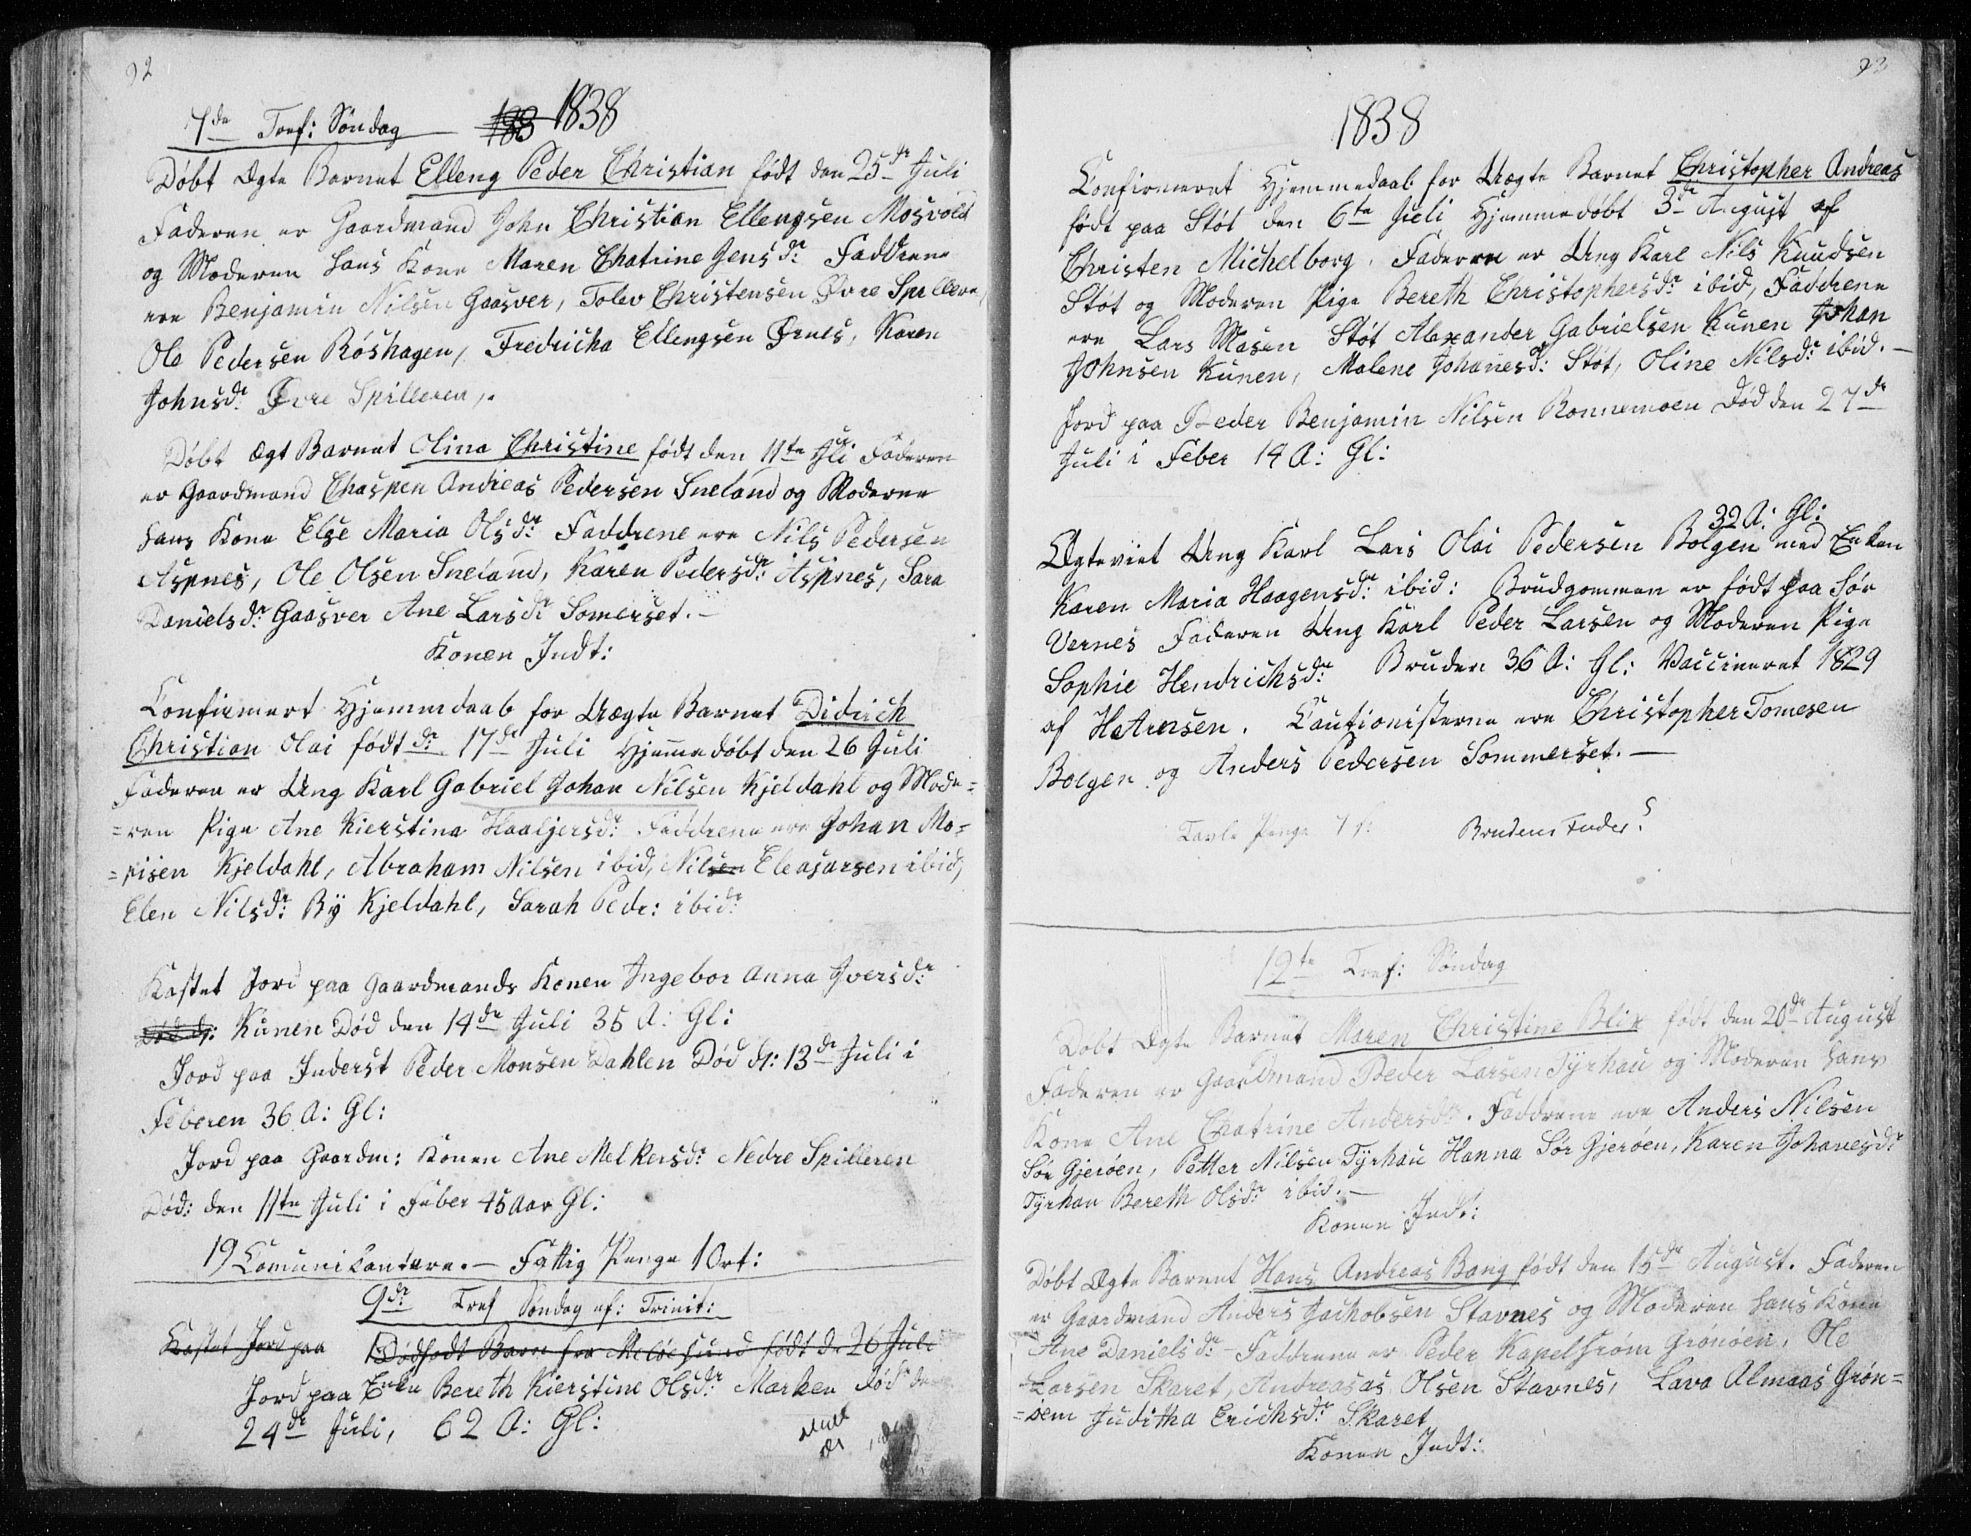 92
7de Tref: Søndag 183 1838
Døbt Ægte Barnet Elleng Peder Christian født den 25de Juli
Faderen er Gaardmand John Christian Ellengsen Mosvold
og Moderen hans Kone Maren Chatrine Jensdr: Faddrene
ere Benjamin Nilsen Gaasver, Tolev Christensen Øvre Spilleren,
Ole Pedersen Røshagen, Fredricha Ellengsen Ørnes, Karen
Johnsdr: Øvre Spilleren,.
Døbt Ægt Barnet Olina Christine født den 11te Juli Faderen
er Gaardmand Chaspen Andreas Pedersen Sneland og Moderen
hans Kone Else Maria Olsdr: Faddrene ere Nils Pedersen
Aspnes, Ole Olsen Sneland, Karen Pedersdr: Aspnes, Sara
Danielsdr: Gaasver Ane Larsdr Somerset.-
Konen Indt:
Confirmert Hjemmdaab for Uægte Barnet Didrich
Christian Olai født dr 17de Juli Hjemedøbt den 26 Juli
Faderen er Ung Karl Gabriel Johan Nilsen Kjeldahl og Mode=
=ren Pige Ane Kierstina Haaljersdr: Faddrene ere Johan Mo=
=risen Kjeldahl, Abraham Nilsen ibid, Nilsen Eleasarsen ibid,
Elen Nilsdr: By Kjeldahl, Sarah Pedr: ibidr
Kastet Jord paa Gaardmands Konen Ingebor Anna Iversdr:
Kunen Død den 14de Juli 35 A: Gl:
Jord paa Inderst Peder Monsen Dahlen Død d: 13de Juli i
Feberen 36 A: Gl:
Jord paa Gaardm: Konen Ane Melkersdr: Nedre Spilleren
Død: den 11te Juli i Feber 45 Aar Gl:
19 Comunikantere.- Fattig Penge 1 Ort:
9de Tref Søndag ef: Trinit:
Kastet Jord paa 1 Dødfødt Barn fra Meløesund født d 26 Juli
Jord paa Enke Bereth Kierstine Olsdr: Marken Død den
24de Juli, 62 A: Gl:
93
1838
Confirmeret Hjemmedaab for Uægte Barnet Christopher Andreas
født paa Støt den 6te Juli Hjemmedøbt 3de August af
Christen Michelborg. Faderen er Ung Karl Nils Knudsen
Støt og Moderen Pige Bereth Christophersdr: ibid, Faddrene
ere Lars Masen Støt Alexander Gabrielsen Kunen Johan
Johnsen Kunen, Malene Johanesdr: Støt, Oline Nilsdr: ibid.-
Jord paa Peder Benjamin Nilsen Ronnemoen Død den 27de
Juli i Feber 14 A: Gl:
32 A: Gl:
Ægteviet Ung Karl Lars Olai Pedersen Bolgen med Enken
Karen Maria Haagensdr: ibid: Brudgommen er født paa Sør
Vernes Faderen Ung Karl Peder Larsen og Moderen Pige
Sophie Hendrichsdr: Bruden 36 A: Gl: Vaccineret 1829
af HArnsen. Cautionisterne ere Christopher Tomesen
Bolgen og Anders Pedersen Sommerset.-
Tavle Penge Brudens Fader?
12te Tref: Søndag
Døbt Ægte Barnet Maren Christine Blix født den 20de August
Faderen er Gaardmand Peder Larsen Tyrhau og Moderen hans
Kone Ane Chatrine Andersdr:. Faddrene ere Anders Nilsen
Sør Gjerøen, Petter Nilsen Tyrhau Hanna Sør Gjerøen, Karen Johanesdr:
Tyrhau Bereth Olsdr: ibid.-
Konen Indt:
Døbt Ægte Barnet Hans Andreas Bang født den 15de August. Faderen
er Gaardmand Anders Jachobsen Stavnes og Moderen hans Kone
Ane Danielsdr: Faddrene er Peder Kapelstrøm Grønøen, Ole
Larsen Skaret, Andreasas Olsen Stavnes, Lava Almaas Grøn=
=øem Juditha Erichsdr: Skaret
Konen Indt: